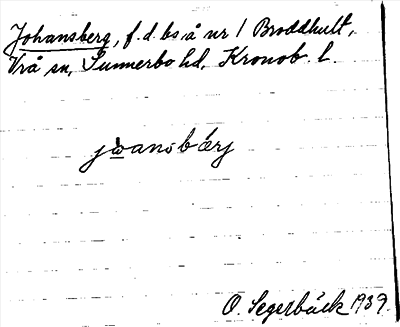 Johansberg, f.d. bs. å nr 1 Broddhult,
Vrå sn, Sunnerbo hd, Kronob. l.
jωansbærj
O. Segerbäck 1939